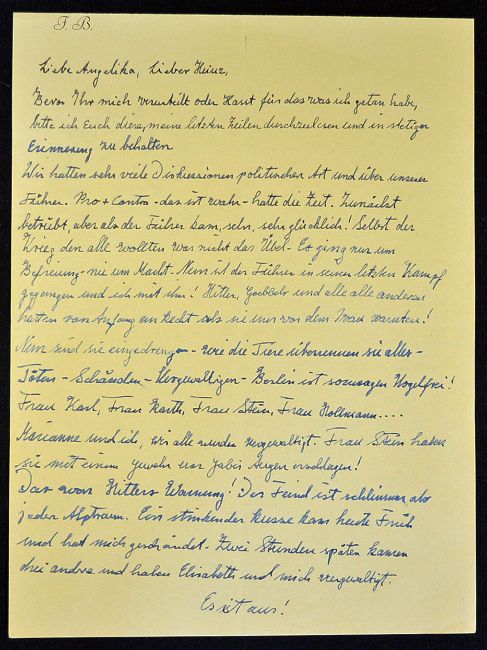 F. B.
Liebe Angelika, Lieber Heinz,
Bevor Ihr mich verurteilt oder Hasst für das was ich getan habe,
bitte ich Euch diese, meine letzten Zeilen durchzulesen und in stetiger
Erinnerung zu behalten
Wir hatten sehr viele Diskussionen politischer Art und über unseren
Führer. Pro + Contra - das ist wahr - hatte die Zeit. Zunächst
betrübt, aber als der Führer kam, sehr, sehr glücklich! Selbst der
Krieg den alle wollten war nicht das Übel - Es ging nur um
Befreiung - nie um Macht. Nun ist der Führer in seinen letzten Kampf
gegangen und ich mit ihm! Hitler, Goebbels und alle alle anderen
hatten von Anfang an Recht als sie uns vor dem warnten!
Nun sind sie eingedrungen - wie die Tiere überrennen sie alles -
Töten - Schänden - Vergewaltigen - Berlin ist sozusagen Vogelfrei!
Frau Karl, Frau Barth, Frau Stein, Frau Hollmann....
Marianne und ich, wir alle wurden vergewaltigt. Frau Stein haben
sie mit einem Gewehr vor Gabis Augen erschlagen!
Das war Hitlers Warnung! Der Feind ist schlimmer als
jeder Alptraum. Ein stinkender Russe kam heute Früh
und hat mich geschändet. Zwei Stunden später kamen
drei andre und haben Elisabeth und mich vergewaltigt.
Es ist aus!